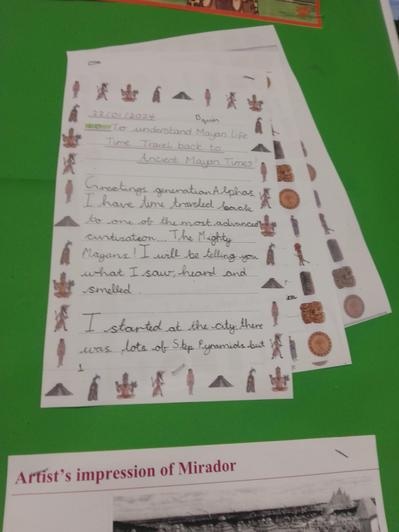 22/01/2024
To understand Mayan life
Time Travel back to
Ancient Mayan Times!
Greetings generation Alphas
I have time traveled back
to one of the most advanced
civilisation... The Mighty
Mayans! I will be telling you
what I saw, heard and
smelled.
I started at the city, there
was lots of Step Pyramids but
1
Artist's impression of Mirador